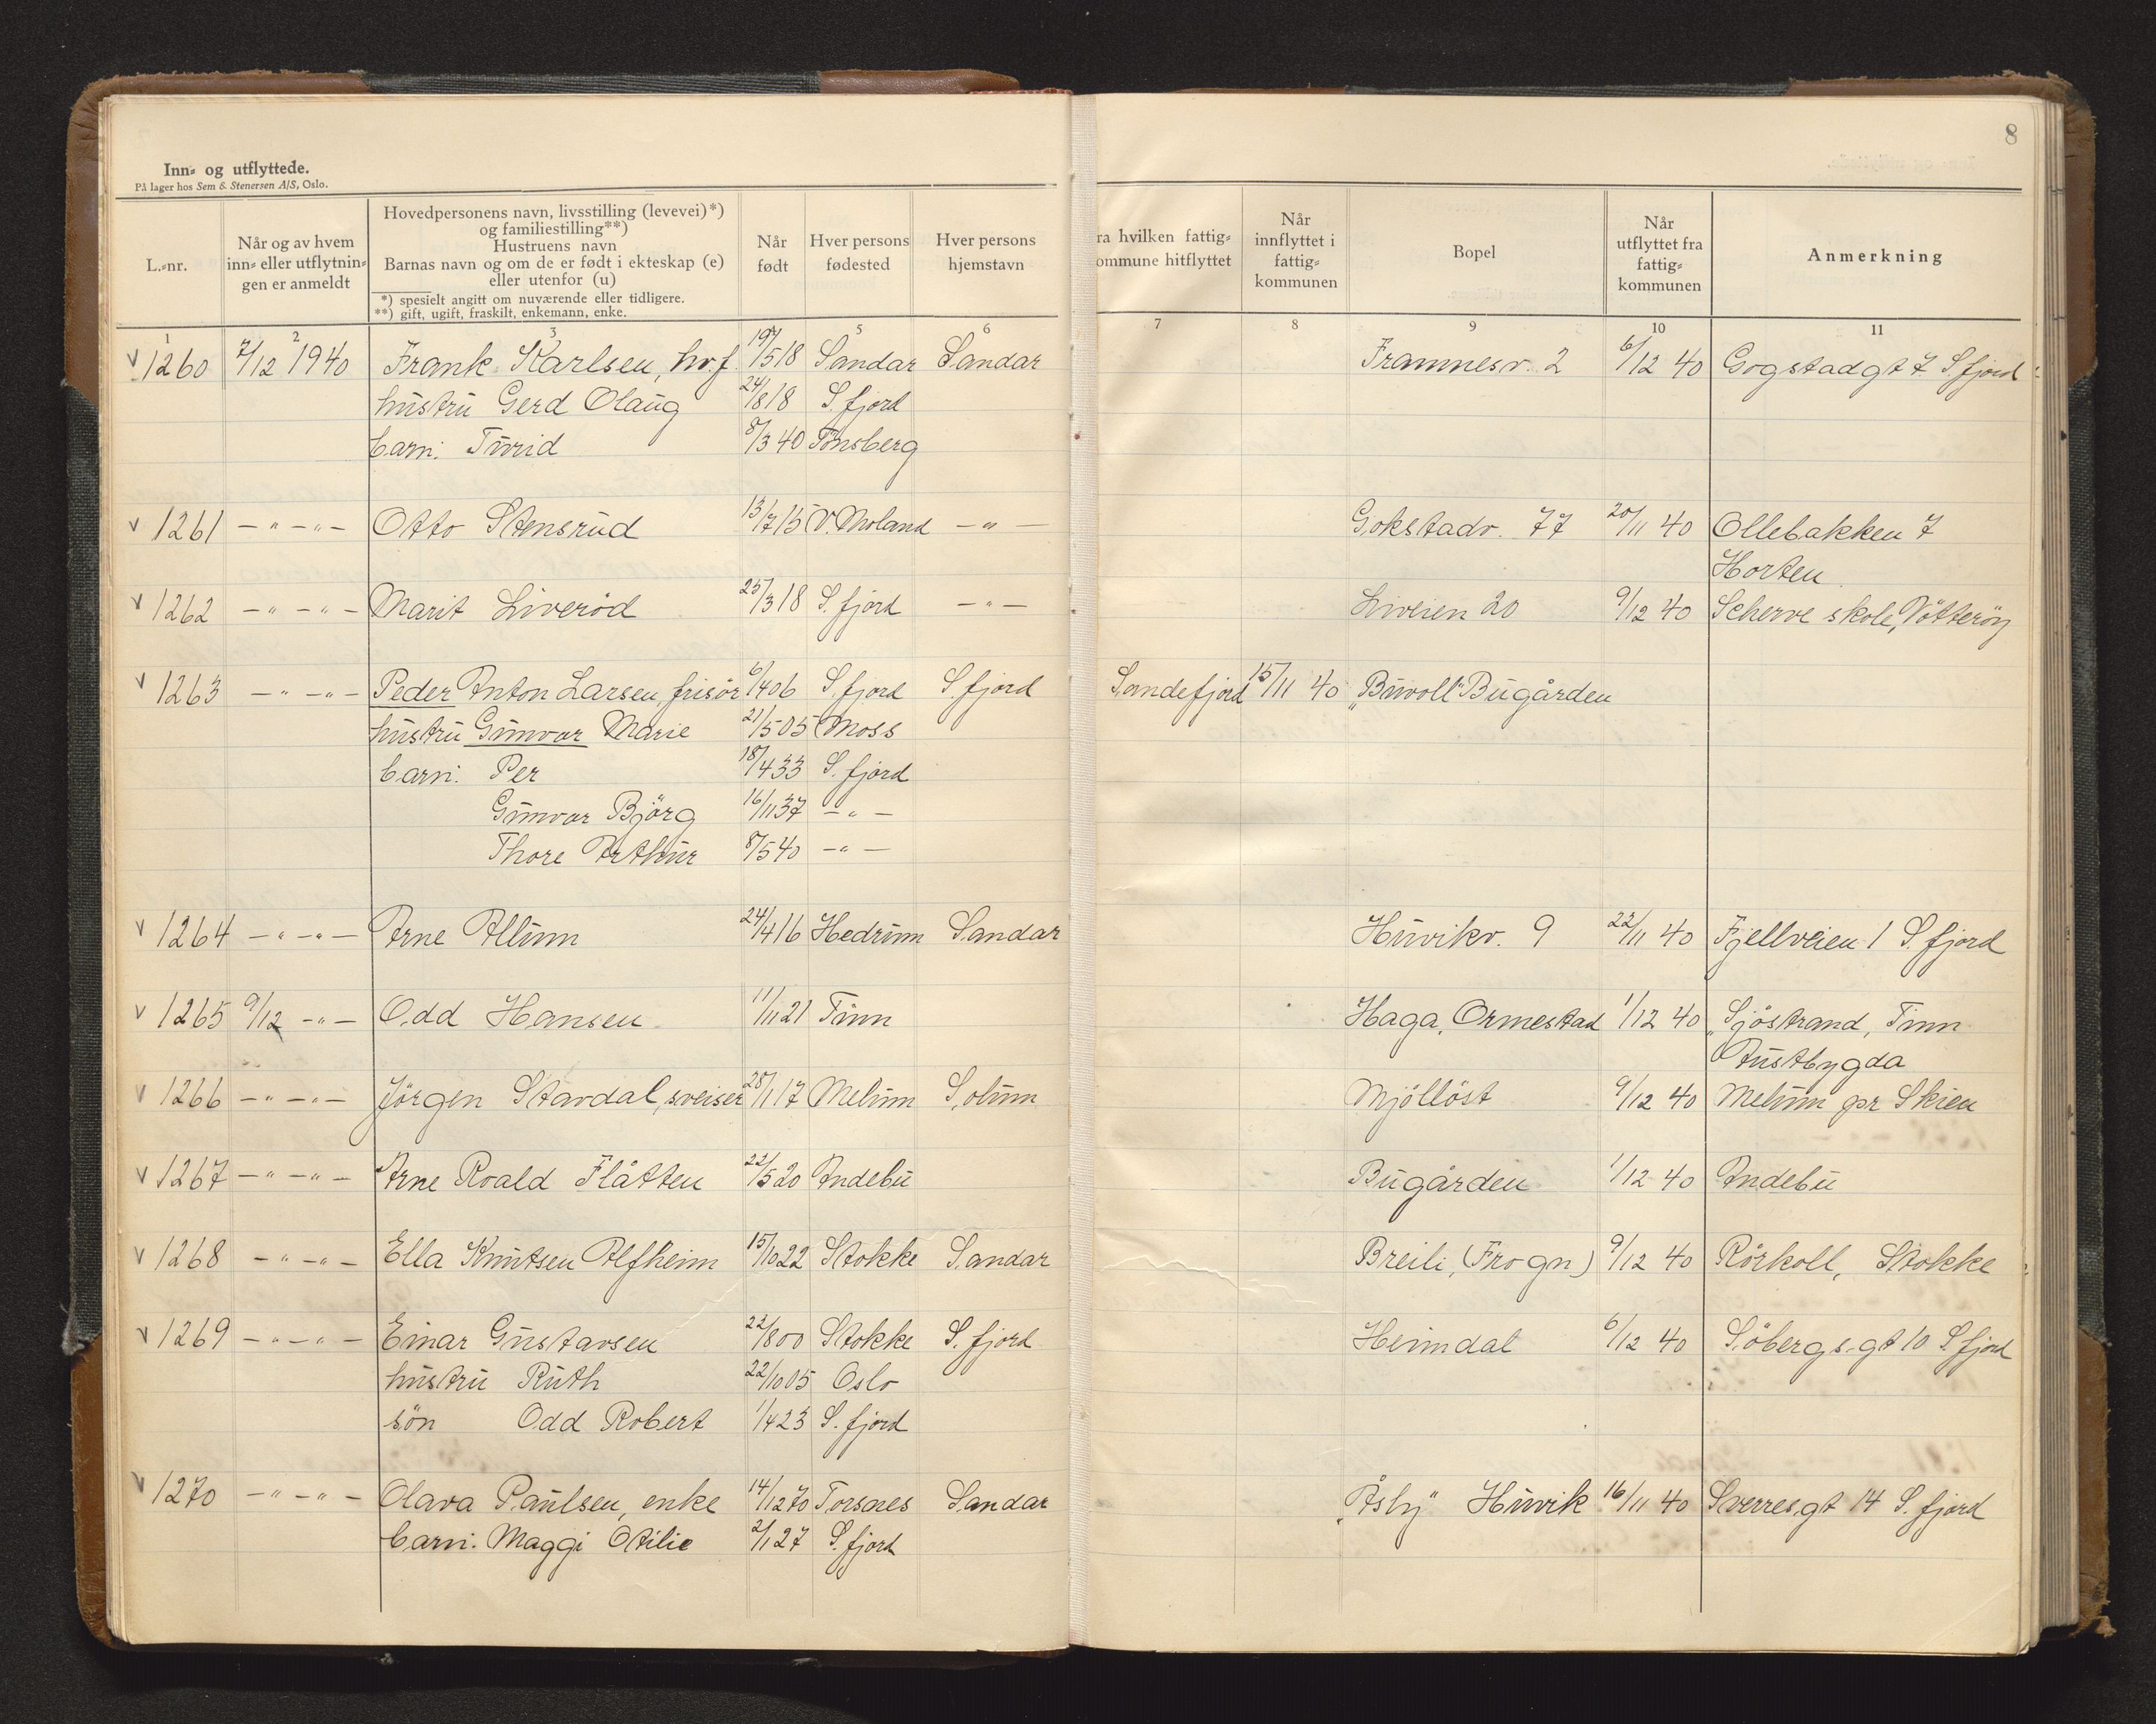 8
Inn= og utflyttede.
På lager hos Sem & Stenersen A/S, Oslo.
L.=nr.
Når og av hvem
inn= eller utflytnin=
gen er anmeldt
Hovedpersonens navn, livsstilling (levevei)*)
og familiestilling**)
Hustruens navn
Barnas navn og om de er født i ekteskap (e)
eller utenfor (u)
*) spesielt angitt om nuværende eller tidligere.
**) gift, ugift, fraskilt, enkemann, enke.
Når
født
Hver persons
fødested
Hver persons
hjemstavn
ra hvilken fattig=
ommune hitflyttet
Når
innflyttet i
fattig=
kommunen
Bopel
Når
utflyttet fra
fattig=
kommunen
Anmerkning
1 2 3 5 6 7 8 9 10 11
v 1260 7/12 1940 Frank Karlsen, hv.f. 19/5 18 Sandar Sandar Framnesv. 2 6/12 40 Gogstadgt 7. S.fjord
hustru Gerd Olaug 24/8 18 S. fjord
barn: Turid 8/3 40 Tønsberg
v 1261 -"- -"- Otto Stensrud 13/7 15 V. Moland -"- Gokstadv. 77 20/11 40 Ollebakken 7
Horten
v 1262 -"- -"- Marit Liverød 25/3 18 S. fjord -"- Liveien 20 9/12 40 Scherve skole, Nötteröy
v 1263 -"- -"- Peder Anton Larsen, frisör 6/4 06 S. fjord S. fjord Sandefjord 15/11 40 "Buvoll" Bugården
hustru Gunvor Marie 21/5 05 Moss
barn: Per 18/4 33 S. fjord
Gunvor Björg 16/11 37 -"-
Thore Arthur 8/5 40 -"-
v 1264 -"- -"- Arne Allum 24/4 16 Hedrum Sandar Huvikv. 9 22/11 40 Fjellveien 1 S. fjord
v 1265 9/12 -"- Odd Hansen 11/11 21 Tinn Haga, Ormestad 1/12 40 "Sjöstrand, Tinn
Austbygda
v 1266 -"- -"- Jörgen Stavdal, sveiser 28/1 17 Melum Solum Mjöllöst 9/12 40 Melum pr Skien
v 1267 -"- -"- Arne Roald Flåtten 22/5 20 Andebu Bugården 1/12 40 Andebu
v 1268 -"- -"- Ella Knutsen Alfheim 15/10 22 Stokke Sandar Breili, (Frogn) 9/12 40 Rörkoll, Stokke
v 1269 -"- -"- Einar Gustavsen 22/8 00 Stokke S. fjord Heimdal 6/12 40 Söbergs.gt 10 S. fjord
hustru Ruth 22/10 05 Oslo
sön Odd Robert 1/4 23 S. fjord
v 1270 -"- -"- Olava Paulsen, enke 14/12 70 Torsnes Sandar "Åsly" Huvik 16/11 40 Sverresgt 14 S. fjord
barn: Maggi Otilie 2/1 27 S. fjord